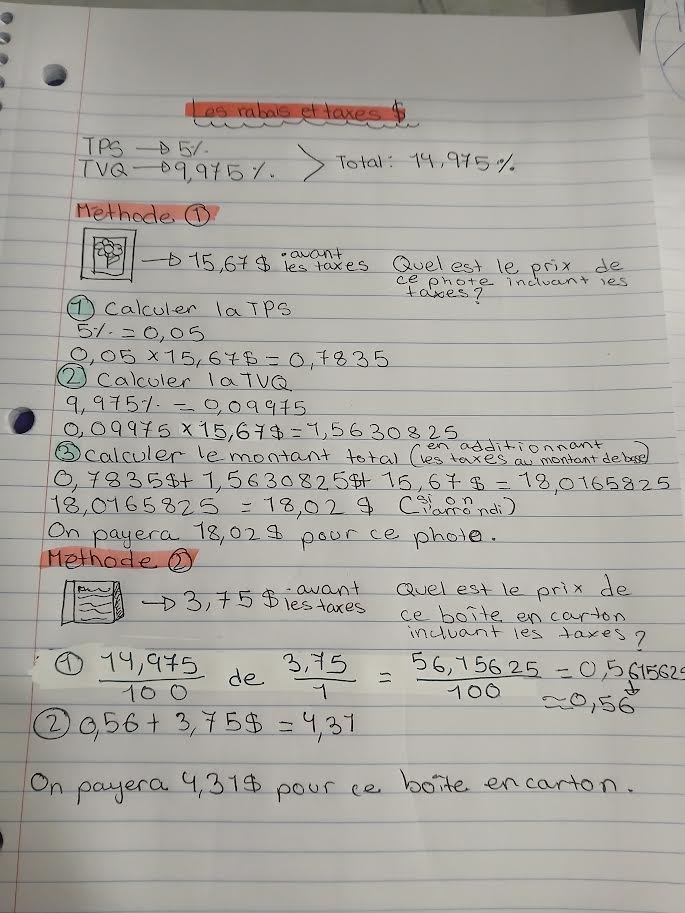 Les rabais et taxes $
TPS → 5%
TVQ → 9,975%. > Total: 14,975%
Methode ①
→ 15,67$ • avant les taxes Quel est le prix de
ce phote incluant les
taxes?
① Calculer la TPS
5% = 0,05
0,05 × 15,67$ = 0,7835
② Calculer la TVQ
9,975% = 0,09975
0,09975 × 15,67$ = 1,5630825
③ Calculer le montant total (en additionnant les taxes au montant de base)
0,7835$ + 1,5630825$ + 15,67$ = 18,0165825
18,0165825 = 18,02$ (si on l'arrondi)
On payera 18,02$ pour ce phote.
Methode ②
→ 3,75$ • avant les taxes Quel est le prix de
ce boîte en carton
incluant les taxes?
① 14,975/100 de 3,75/1 = 56,15625/100 = 0,5615625
≈0,56
② 0,56 + 3,75$ = 4,31
On payera 4,31$ pour ce boîte en carton.